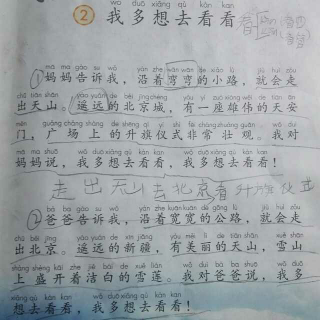 wǒ duō xiǎng qù kàn kan
2 我多想去看看
mā ma gào su wǒ yán zhe wān wān de xiǎo lù jiù huì zǒu
①妈妈告诉我，沿着弯弯的小路，就会走
chū tiān shān yáo yuǎn de běi jīng chéng yǒu yí zuò xióng wěi de tiān ān
出天山。遥远的北京城，有一座雄伟的天安
mén guǎng chǎng shàng de shēng qí yí shì fēi cháng zhuàng guān wǒ duì
门，广场上的升旗仪式非常壮观。我对
mā ma shuō wǒ duō xiǎng qù kàn kan wǒ duō xiǎng qù kàn kan
妈妈说，我多想去看看，我多想去看看！
走出天山去北京看升旗仪式
bà ba gào su wǒ yán zhe kuān kuān de gōng lù jiù huì zǒu
②爸爸告诉我，沿着宽宽的公路，就会走
chū běi jīng yáo yuǎn de xīn jiāng yǒu měi lì de tiān shān xuě shān
出北京。遥远的新疆，有美丽的天山，雪山
shàng shèng kāi zhe jié bái de xuě lián wǒ duì bà ba shuō wǒ duō
上盛开着洁白的雪莲。我对爸爸说，我多
xiǎng qù kàn kan wǒ duō xiǎng qù kàn kan
想去看看，我多想去看看！